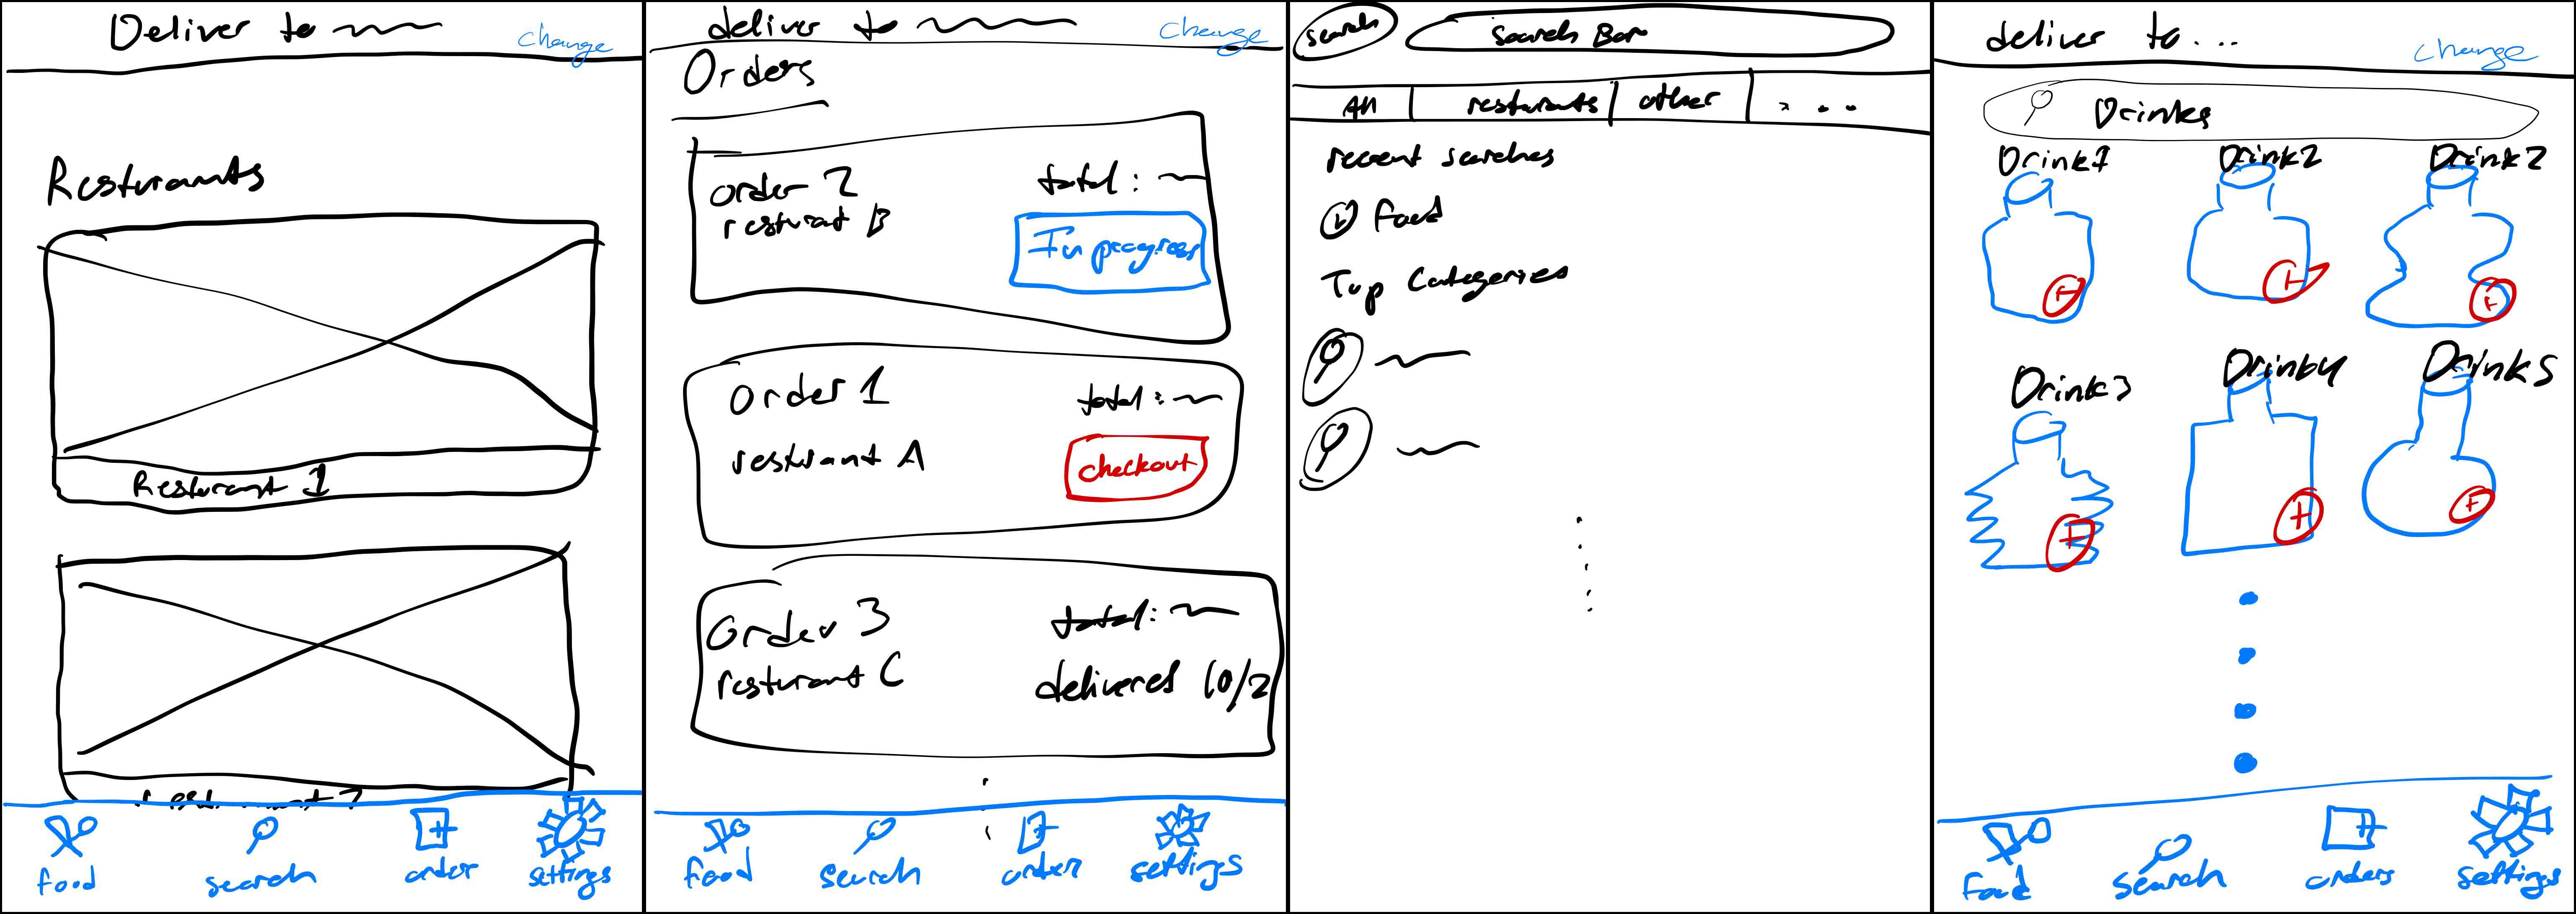 Deliver to
change
Resturants
Resturant 1
food
search
order
settings
deliver to
change
Orders
order 2
total:
resturant B
In progress
Order 1
total:
resturant A
checkout
Order 3
total:
resturant C
delivered 10/2
food
search
order
settings
search
Search Bar
All
resturants
other
recent searches
food
Top Categories
deliver to...
change
Drinks
Drink1
Drink2
Drink2
Drink3
Drink4
Drink5
food
search
orders
settings